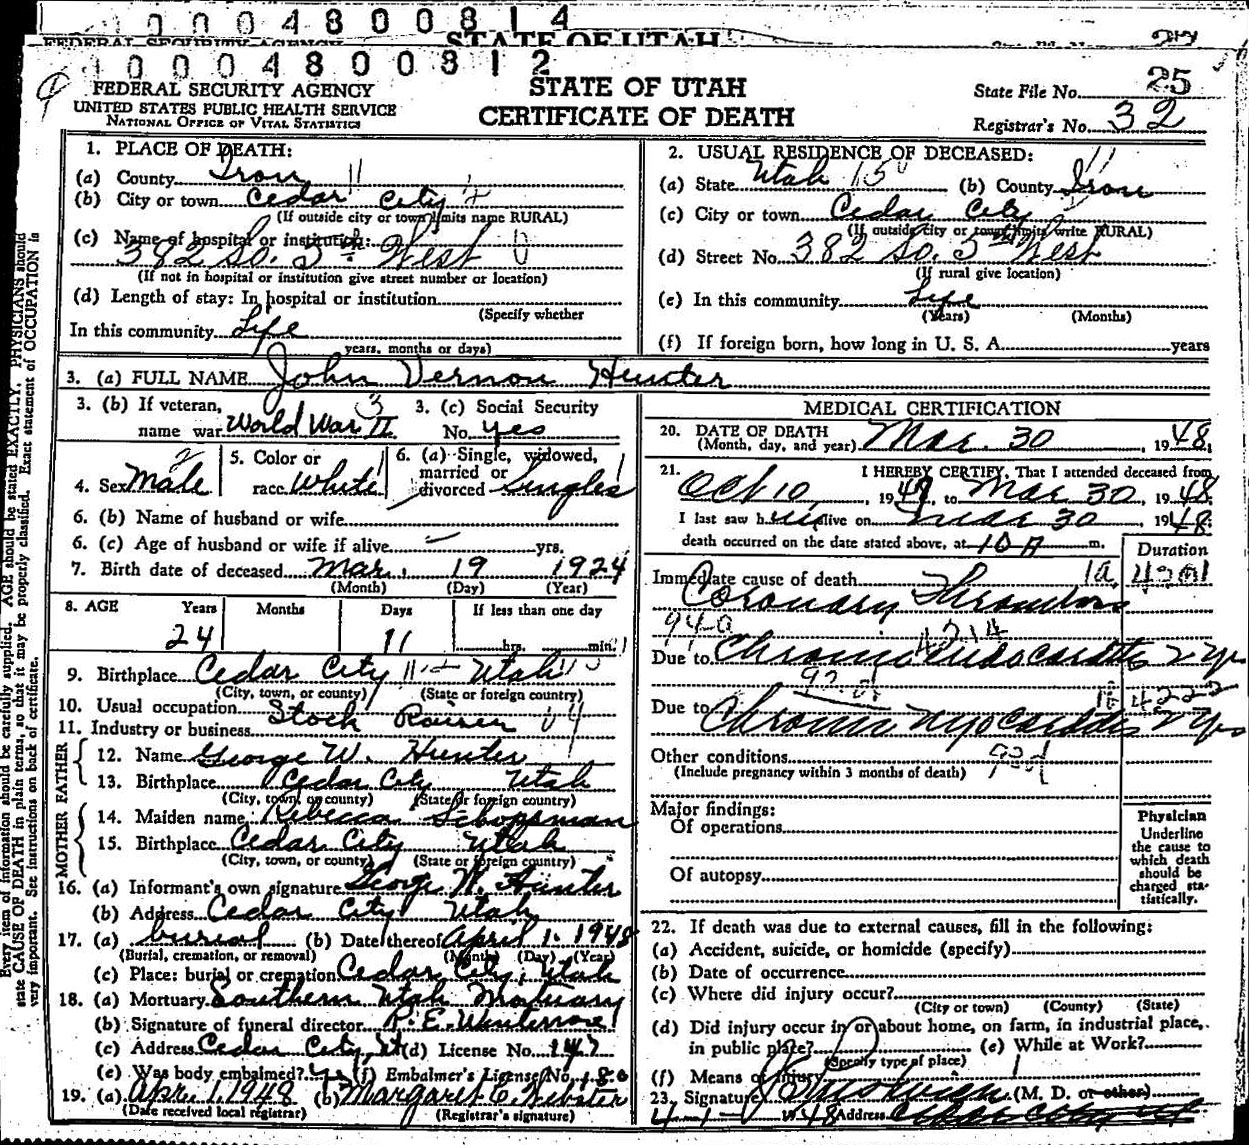 0 0 0 4 8 0 0 8 1 4
FEDERAL SECURITY AGENCY STATE OF UTAH
1 0 0 0 4 8 0 0 8 1 2
FEDERAL SECURITY AGENCY
UNITED STATES PUBLIC HEALTH SERVICE
NATIONAL OFFICE OF VITAL STATISTICS
STATE OF UTAH
CERTIFICATE OF DEATH
State File No. 25
Registrar's No. 32
1. PLACE OF DEATH:
(a) County Iron 11
(b) City or town Cedar City
(If outside city or town limits name RURAL)
(c) Name of hospital or institution:
382 So. 5th West 0
(If not in hospital or institution give street number or location)
(d) Length of stay: In hospital or institution
(Specify whether
In this community Life
years, months or days)
2. USUAL RESIDENCE OF DECEASED:
(a) State Utah 15 (b) County Iron 11
(c) City or town Cedar City
(If outside city or town limits write RURAL)
(d) Street No. 382 So. 5th West
(If rural give location)
(e) In this community Life
(Years) (Months)
(f) If foreign born, how long in U. S. A. years
3. (a) FULL NAME John Vernon Hunter
3. (b) If veteran, 3 3. (c) Social Security
name war World War II No. yes
4. Sex Male 2 5. Color or race White 1 6. (a) Single, widowed, married or divorced Single 1
6. (b) Name of husband or wife
6. (c) Age of husband or wife if alive — yrs.
7. Birth date of deceased Mar. 19 1924
(Month) (Day) (Year)
8. AGE Years Months Days If less than one day
24 11 hrs. min.
9. Birthplace Cedar City Utah
(City, town, or county) (State or foreign country)
10. Usual occupation Stock Raiser
11. Industry or business
FATHER
12. Name George W. Hunter
13. Birthplace Cedar City Utah
(City, town, or county) (State or foreign country)
MOTHER
14. Maiden name Rebecca Schoppman
15. Birthplace Cedar City Utah
(City, town, or county) (State or foreign country)
16. (a) Informant's own signature George W. Hunter
(b) Address Cedar City Utah
17. (a) burial (b) Date thereof April 1. 1948
(Burial, cremation, or removal) (Month) (Day) (Year)
(c) Place: burial or cremation Cedar City, Utah
18. (a) Mortuary Southern Utah Mortuary
(b) Signature of funeral director R. E.
(c) Address Cedar City, Ut (d) License No. 147
(e) Was body embalmed? Yes (f) Embalmer's License No. 180
19. (a) Apr. 1, 1948 (b) Margaret C. Webster
(Date received local registrar) (Registrar's signature)
MEDICAL CERTIFICATION
20. DATE OF DEATH
(Month, day, and year) Mar. 30 1948
21. I HEREBY CERTIFY, That I attended deceased from
Oct 10, 1947, to Mar 30 1948
I last saw him alive on Mar 30 1948
death occurred on the date stated above, at 10 A m.
Duration
Immediate cause of death 1a 4201
Coronary Thrombosis
94a 4214
Due to Chronic Endocarditis 2 yrs
92d 4222
Due to Chronic Myocarditis 2 yrs
Other conditions 93d
(Include pregnancy within 3 months of death)
Major findings:
Of operations
Of autopsy
Physician
Underline
the cause to
which death
should be
charged sta-
tistically.
22. If death was due to external causes, fill in the following:
(a) Accident, suicide, or homicide (specify)
(b) Date of occurrence
(c) Where did injury occur?
(City or town) (County) (State)
(d) Did injury occur in or about home, on farm, in industrial place,
in public place? (e) While at Work?
(Specify type of place)
(f) Means of injury
23. Signature (M. D. or other)
4-1- 1948 Address Cedar City Ut
Every item of information should be carefully supplied. AGE should be stated EXACTLY. PHYSICIANS should
state CAUSE OF DEATH in plain terms, so that it may be properly classified. Exact statement of OCCUPATION is
very important. See instructions on back of certificate.